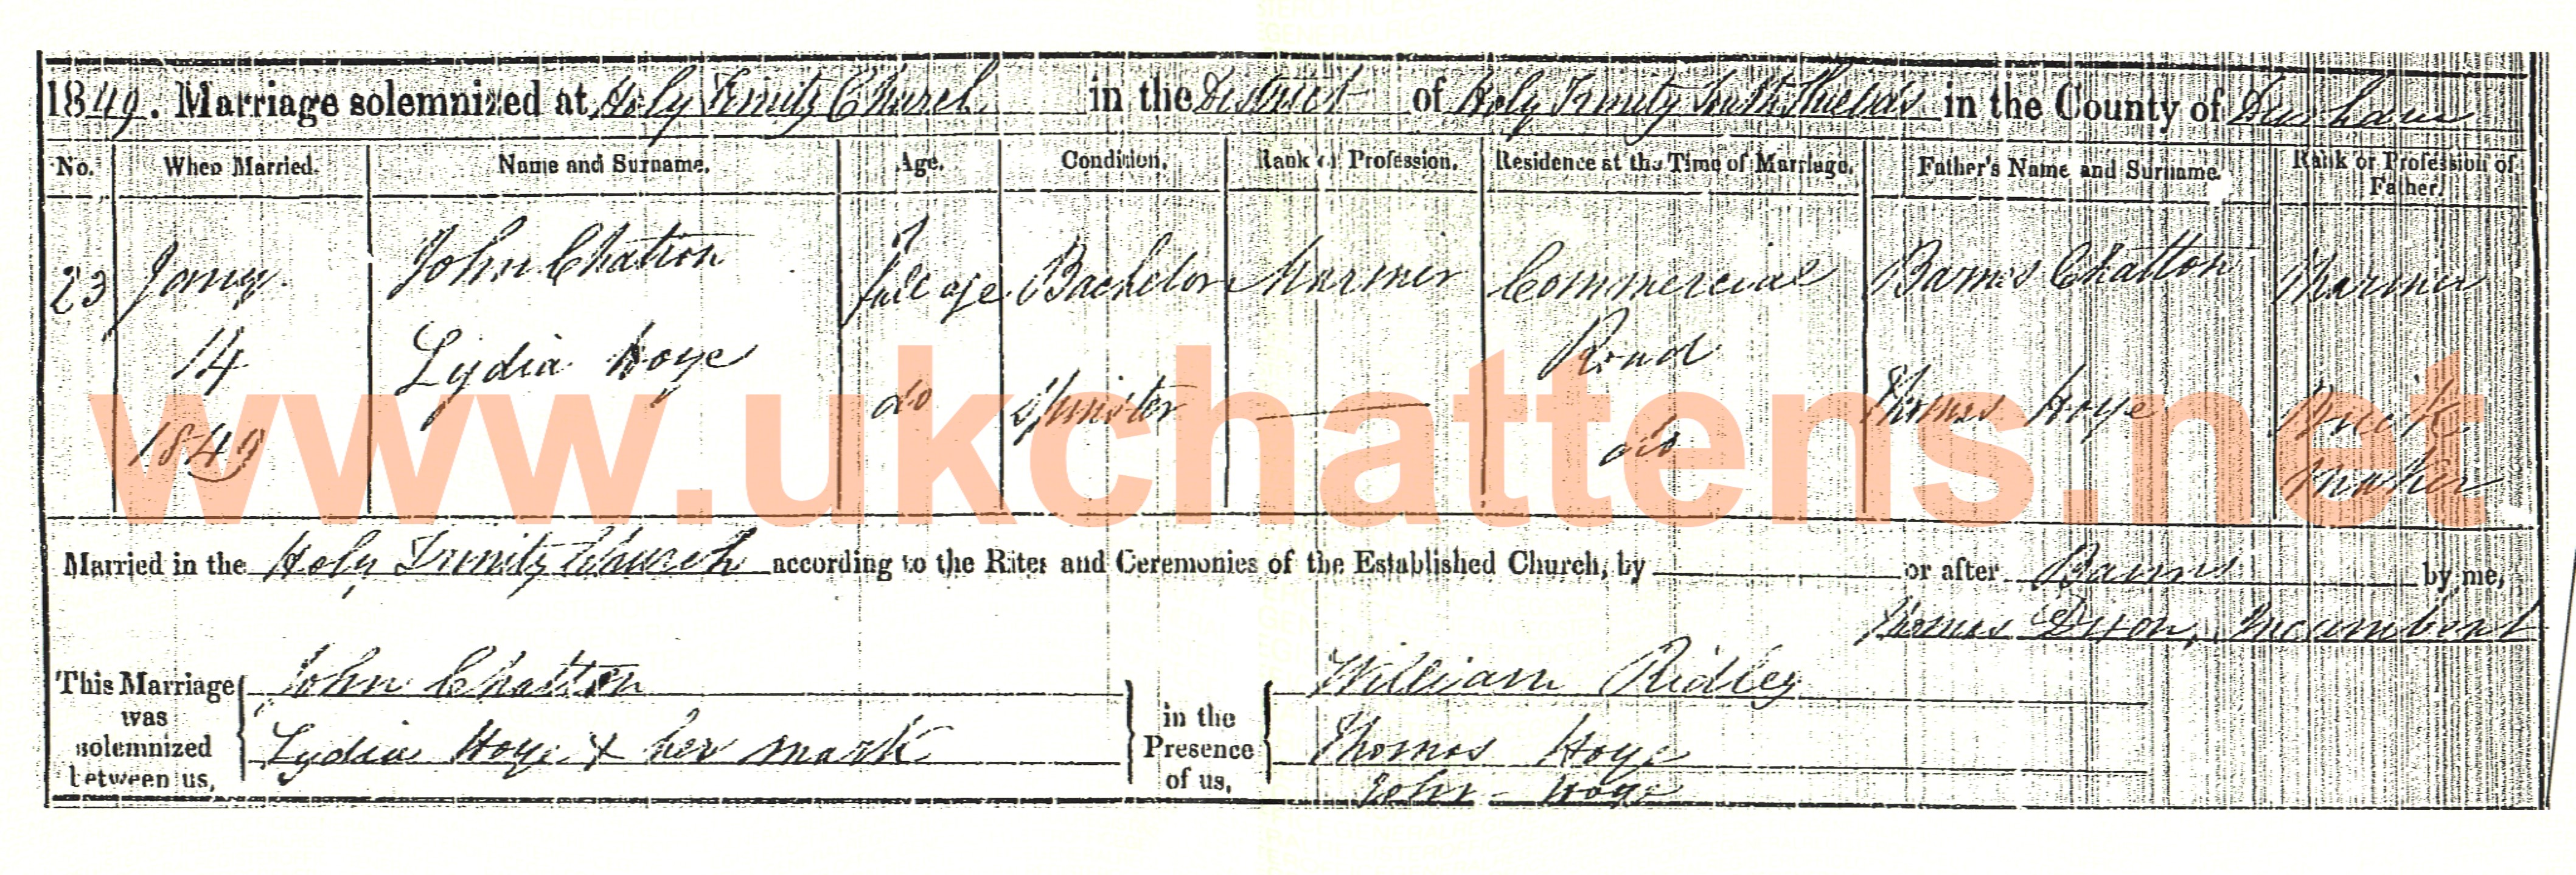 1849. Marriage solemnized at Holy Trinity Church in the District of Holy Trinity South Shields in the County of Durham
No. When Married. Name and Surname. Age. Condition. Rank or Profession. Residence at the Time of Marriage. Father's Name and Surname. Rank or Profession of Father.
23 Jany. John Chatton of full age Bachelor Mariner Commercial Barns Chatton Mariner
14 Lydia Hoye Road
do Spinster — Thomas Hoye Brick
1849 do Maker
www.ukchattens.net
Married in the Holy Trinity Church according to the Rites and Ceremonies of the Established Church, by — or after Banns by me,
Thomas Dixon, Incumbent
This Marriage was solemnized between us, John Chatton in the Presence of us, William Ridley
Lydia Hoye x her mark Thomas Hoye
John Hoye